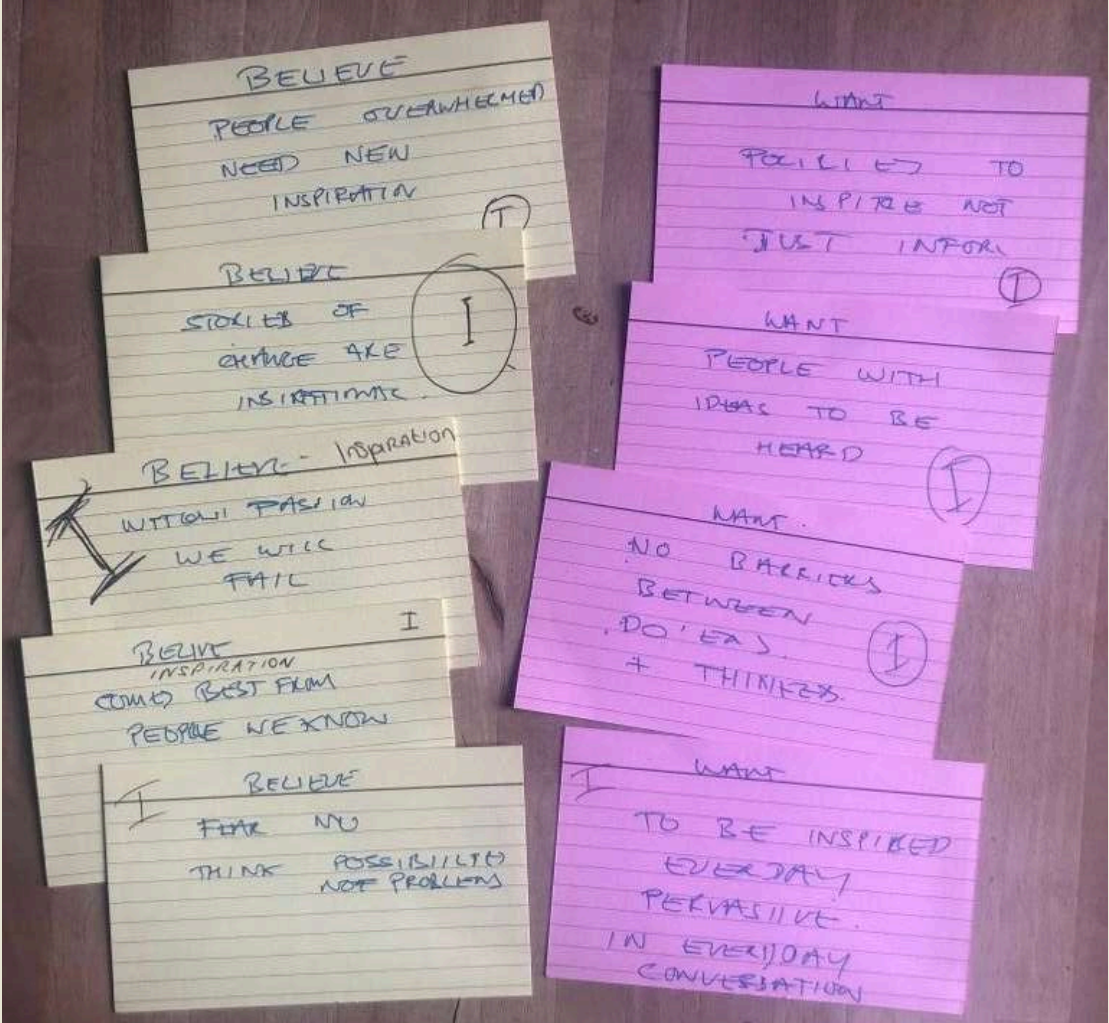 BELIEVE
PEOPLE OVERWHELMED
NEED NEW
INSPIRATION
I
BELIEVE
STORIES OF
CHANGE ARE
INSIRATIONAL.
I
BELIEVE - INSPIRATION
WITHOUT PASSION
WE WILL
FAIL
I
BELIVE
INSPIRATION
COMES BEST FROM
PEOPLE WE KNOW
I
BELIEVE
FEAR NO
THINK POSSIBIILTES
NOT PROBLEMS
WANT
POLICIES TO
INSPIRE NOT
JUST INFORM
I
WANT
PEOPLE WITH
IDEAS TO BE
HEARD
I
WANT.
NO BARRIERS
BETWEEN
DO'ERS
+ THINKERS.
I
I
WANT
TO BE INSPIRED
EVERDAY
PERVASIIVE.
IN EVERYDAY
CONVERSATION